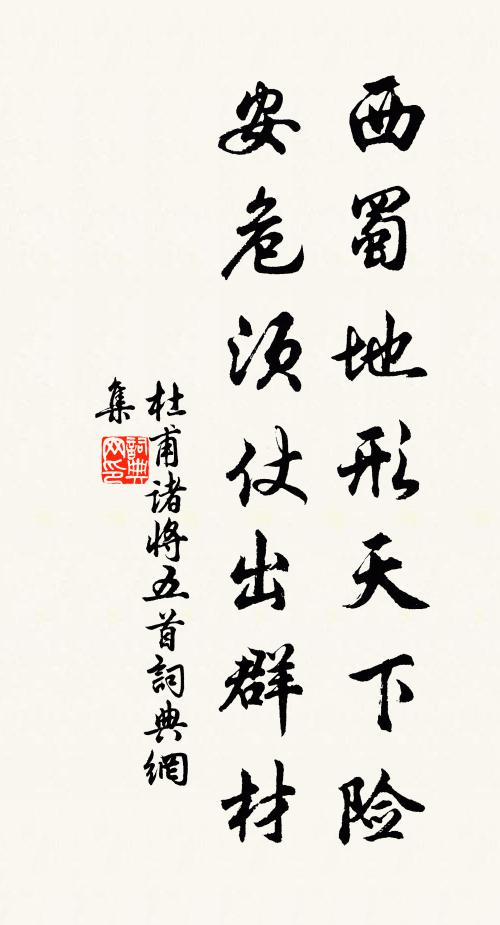 西蜀地形天下险
安危须仗出群材
杜甫诸将五首詞典網
集
詞典
网印